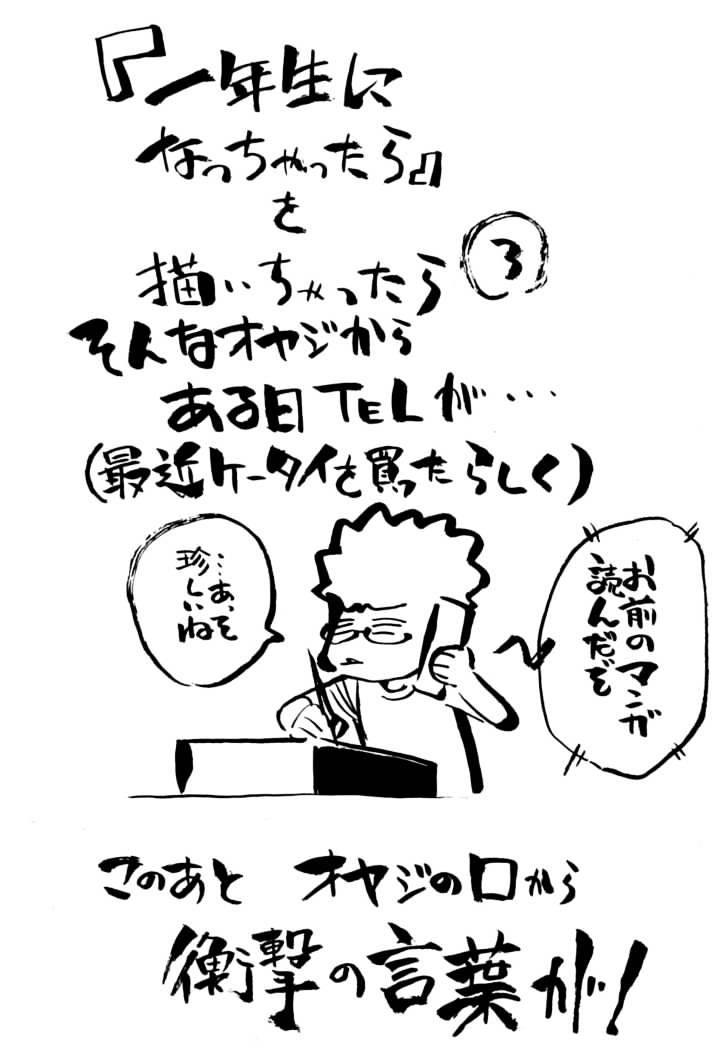 『一年生に
なっちゃったら』
を
描いちゃったら③
そんなオヤジから
ある日TELが…
(最近ケータイを買ったらしく)
お前のマンガ
読んだぞ
…あ、そ
珍しいね
このあと オヤジの口から
衝撃の言葉が!